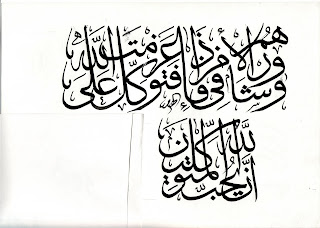 وشاورهم في الأمر فإذا عزمت فتوكل على الله
إن الله يحب المتوكلين